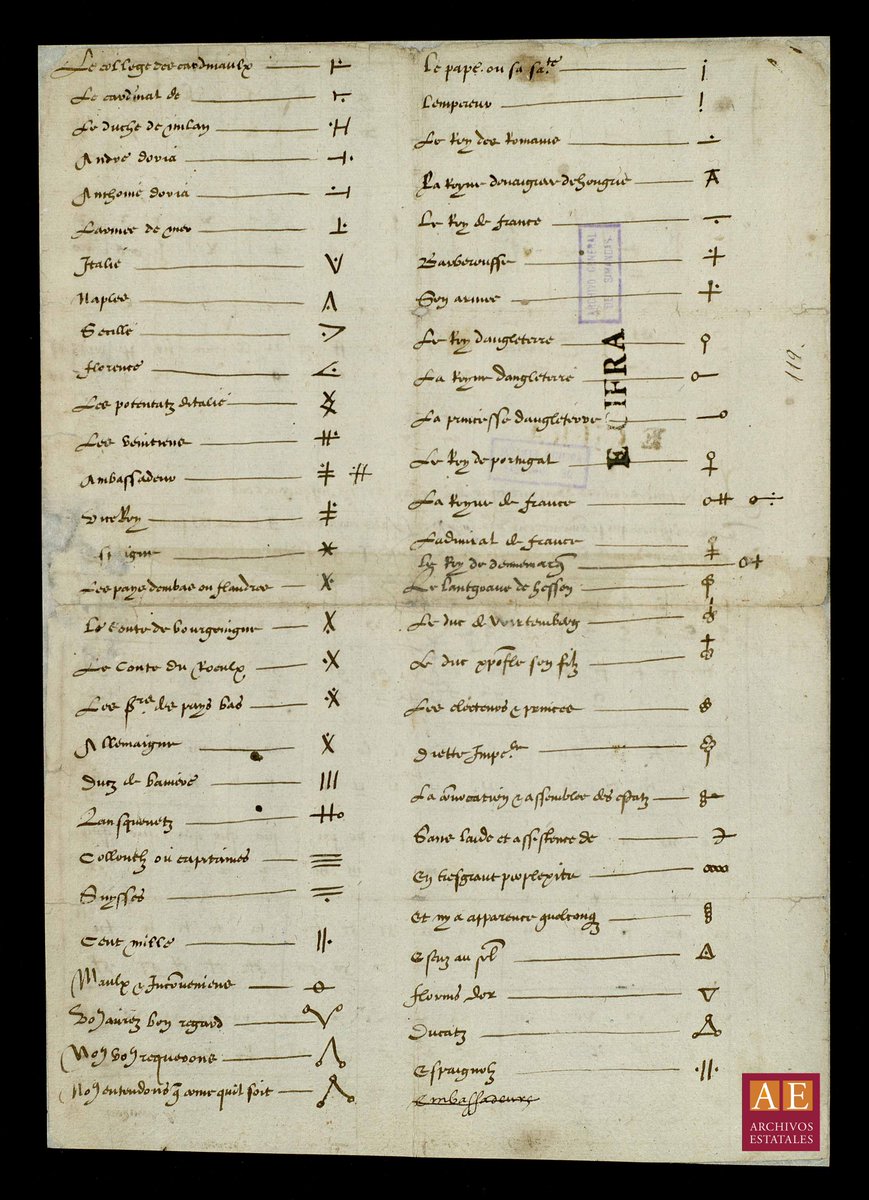 Le college des cardinaulx
Le cardinal de
Le duche de milan
Andre doria
Anthoine doria
Larmee de mer
Italie
Naples
Secille
florence
Les potentatz ditalie
Les venitiens
Ambassadeur
Vice Roy
Les pays denbas ou flandres
Le Conte de bourgoingne
Le Conte du Roeulx
Les pays bas
Allemaigne
Ducz de baviere
Lansquenetz
Collonelz ou capitaines
Suysses
Cent mille
Maulx & Inconveniens
bon regard
requerons
entendons quil soit
Le pape ou sa sate
Lempereur
Le Roy des Romains
La Royne de hongrie
Le Roy de france
Barberousse
Son armee
Le Roy dangleterre
La Royne dangleterre
La princesse dangleterre
Le Roy de portugal
La Royne de france
Ladmiral de france
Le Roy de dennemarch
Le lantgrave de hessen
Le duc de Wirtemberg
Le duc son filz
Les electeurs & princes
diette
La convocation & assemblee des estatz
Sans laide et assistence de
En tresgrant perplexite
Et ny a apparence
Escuz au
florins dor
Ducatz
Espaignolz
Embassadeurs
ARCHIVO GENERAL
DE SIMANCAS
E CIFRA
119.
AE
ARCHIVOS
ESTATALES